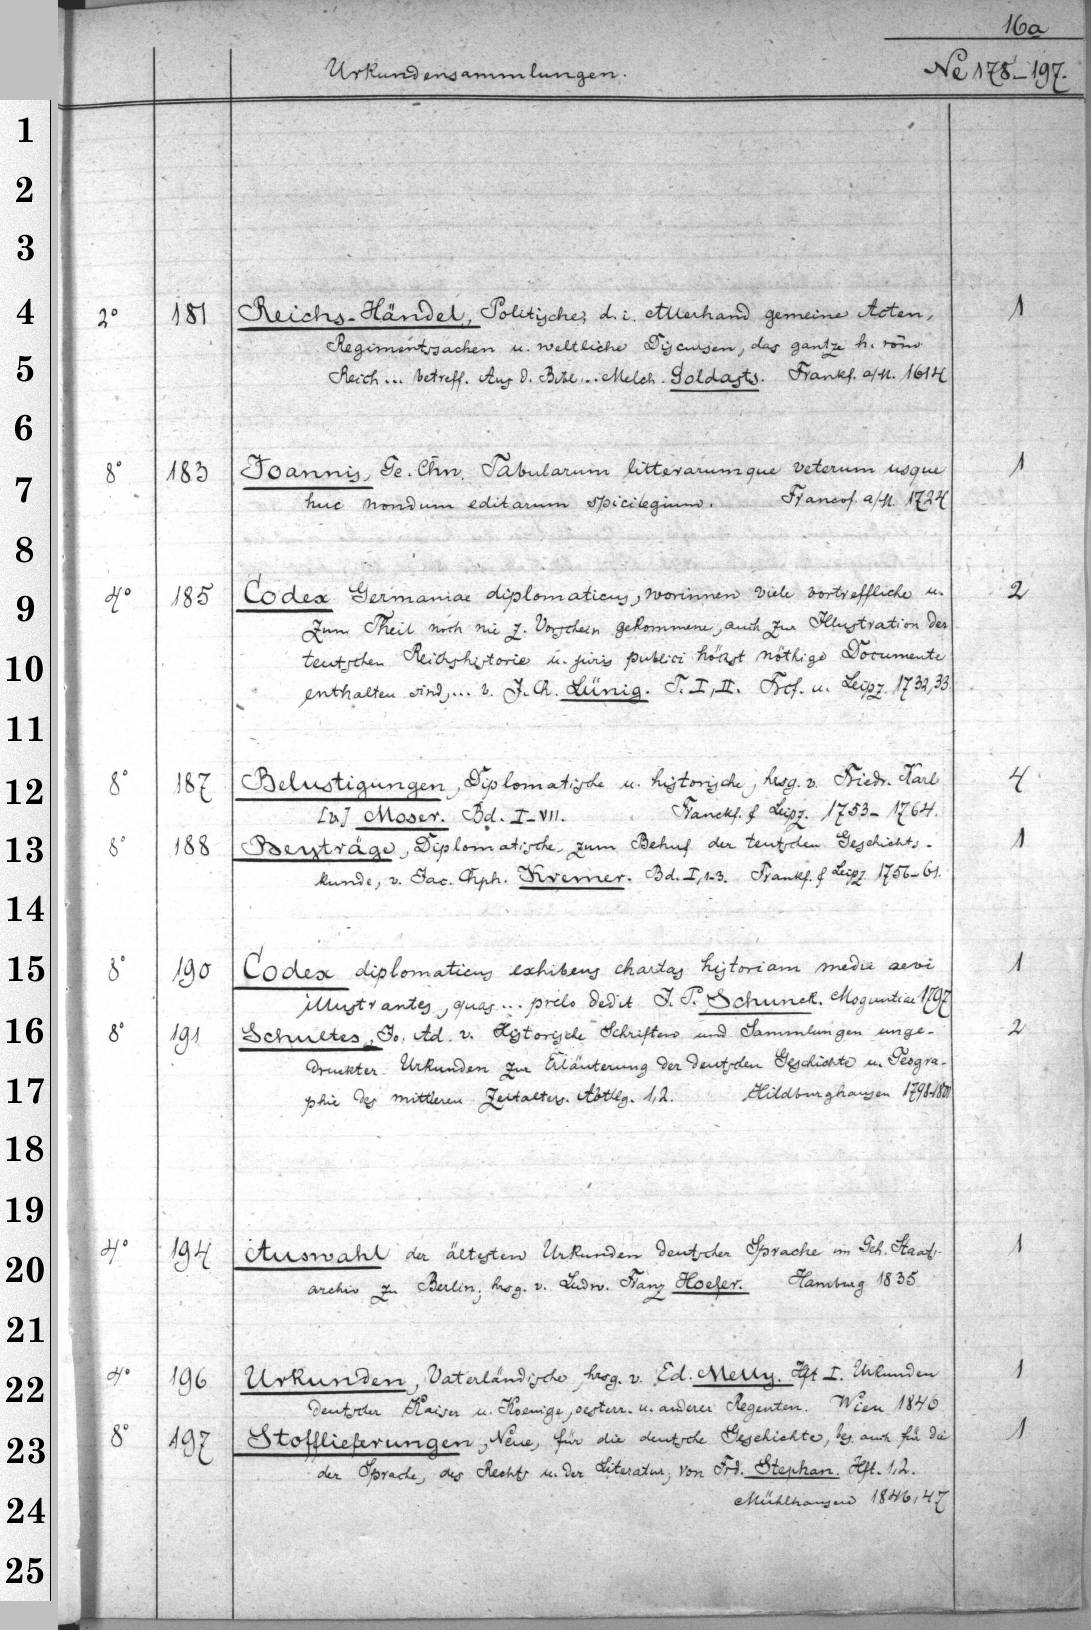 16a
Urkundensammlungen. No 178-197.
1
2
3
4 2° 181 Reichs-Händel, Politische, d. i. Allerhand gemeine Acten, 1
Regimentssachen u. weltliche Discursen, das gantze h. röm
5 Reich... betreff. Aus d. Bibl... Melch. Goldasts. Frankf. a/M. 1614
6
7 8° 183 Joannis, Ge. Chn. Tabularum litterarumque veterum usque 1
huc nondum editarum spicilegium. Francof. a/M. 1724
8
9 4° 185 Codex Germaniae diplomaticus, worinnen viele vortreffliche u. 2
Zum Theil noch nie z. Vorschein gekommene, auch zur Illustration der
10 teutschen Reichshistorie u. juris publici höchst nöthige Documente
enthalten sind,... v. J. Ch. Lünig. T. I, II. Frcf. u. Leipz. 1732,33
11
12 8° 187 Belustigungen, Diplomatische u. historische, hrsg. v. Friedr. Karl 4
[v.] Moser. Bd. I-VII. Franckf. & Leipz. 1753-1764.
13 8° 188 Beyträge, Diplomatische, zum Behuf der teutschen Geschichts- 1
kunde, v. Jac. Chph. Kremer. Bd. I,1-3. Frankf. & Leipz. 1756-61.
14
15 8° 190 Codex diplomaticus exhibens chartas historiam medii aevi 1
illustrantes, quas... prelo dedit J. P. Schunck. Moguntiae 1797
16 8° 191 Schultes, Jo. Ad. v. Historische Schriften und Sammlungen unge- 2
druckter Urkunden zur Erläuterung der deutschen Geschichte u. Geogra-
17 phie des mittleren Zeitalters. Abtlg. 1,2. Hildburghausen 1798-1801
18
19
20 4° 194 Auswahl der ältesten Urkunden deutscher Sprache im Geh. Staats- 1
archiv zu Berlin, hrsg. v. Ludw. Franz Hoefer. Hamburg 1835
21
22 4° 196 Urkunden, Vaterländische, hrsg. v. Ed. Melly. Hft I. Urkunden 1
deutscher Kaiser u. Koenige, oesterr. u. anderer Regenten. Wien 1846
23 8° 197 Stofflieferungen, Neue, für die deutsche Geschichte, bes. auch für die 1
der Sprache, des Rechts u. der Literatur, von Frd. Stephan. Hft. 1,2.
24 Mühlhausen 1846,47
25